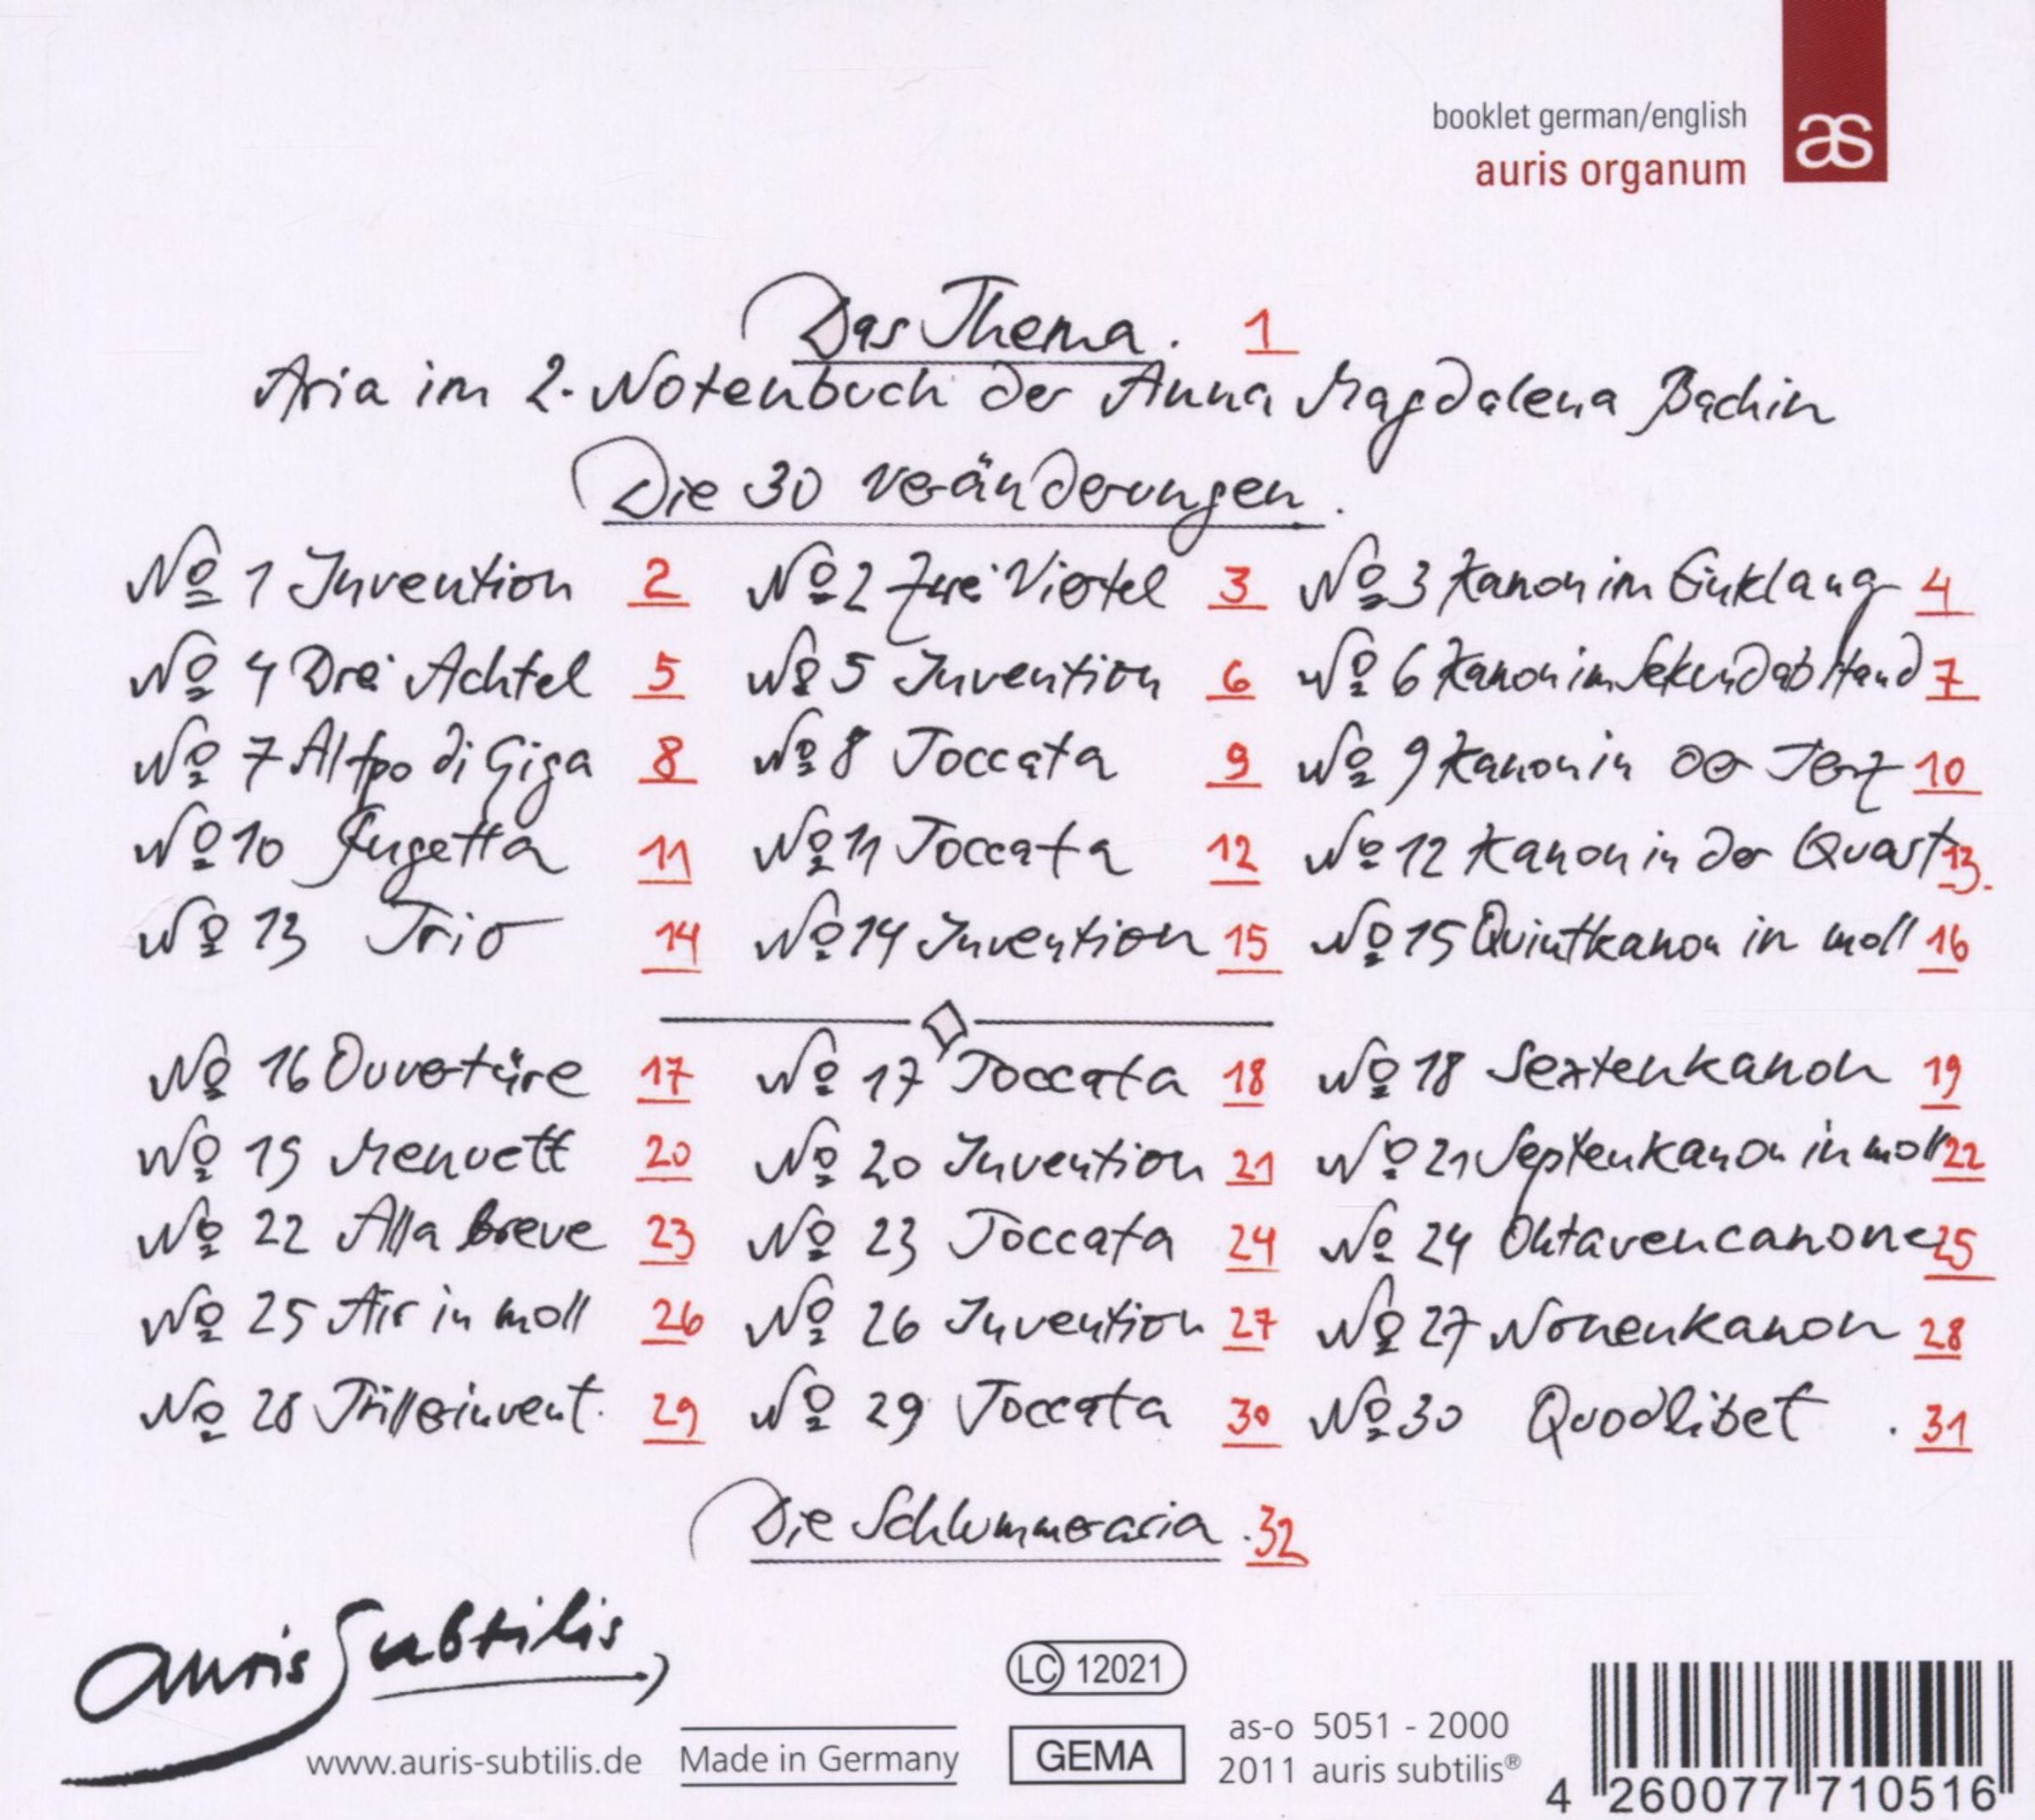 booklet german/english
auris organum
as
Das Thema. 1
Aria im 2. Notenbuch der Anna Magdalena Bachin
Die 30 Veränderungen.
No 1 Invention 2 No 2 Zwei Viertel 3 No 3 Kanon im Einklang 4
No 4 Drei Achtel 5 No 5 Invention 6 No 6 Kanon im Sekundabstand 7
No 7 Al tpo di Giga 8 No 8 Toccata 9 No 9 Kanon in der Terz 10
No 10 Fugetta 11 No 11 Toccata 12 No 12 Kanon in der Quart 13.
No 13 Trio 14 No 14 Invention 15 No 15 Quintkanon in moll 16
No 16 Ouvertüre 17 No 17 Toccata 18 No 18 Sextenkanon 19
No 19 Menuett 20 No 20 Invention 21 No 21 Septenkanon in moll 22
No 22 Alla breve 23 No 23 Toccata 24 No 24 Oktavencanone 25
No 25 Air in moll 26 No 26 Invention 27 No 27 Nonenkanon 28
No 28 Trillerinvent. 29 No 29 Toccata 30 No 30 Quodlibet . 31
Die Schlummeraria . 32
auris Subtilis
www.auris-subtilis.de
Made in Germany
LC 12021
GEMA
as-o 5051 - 2000
2011 auris subtilis®
4 260077 710516